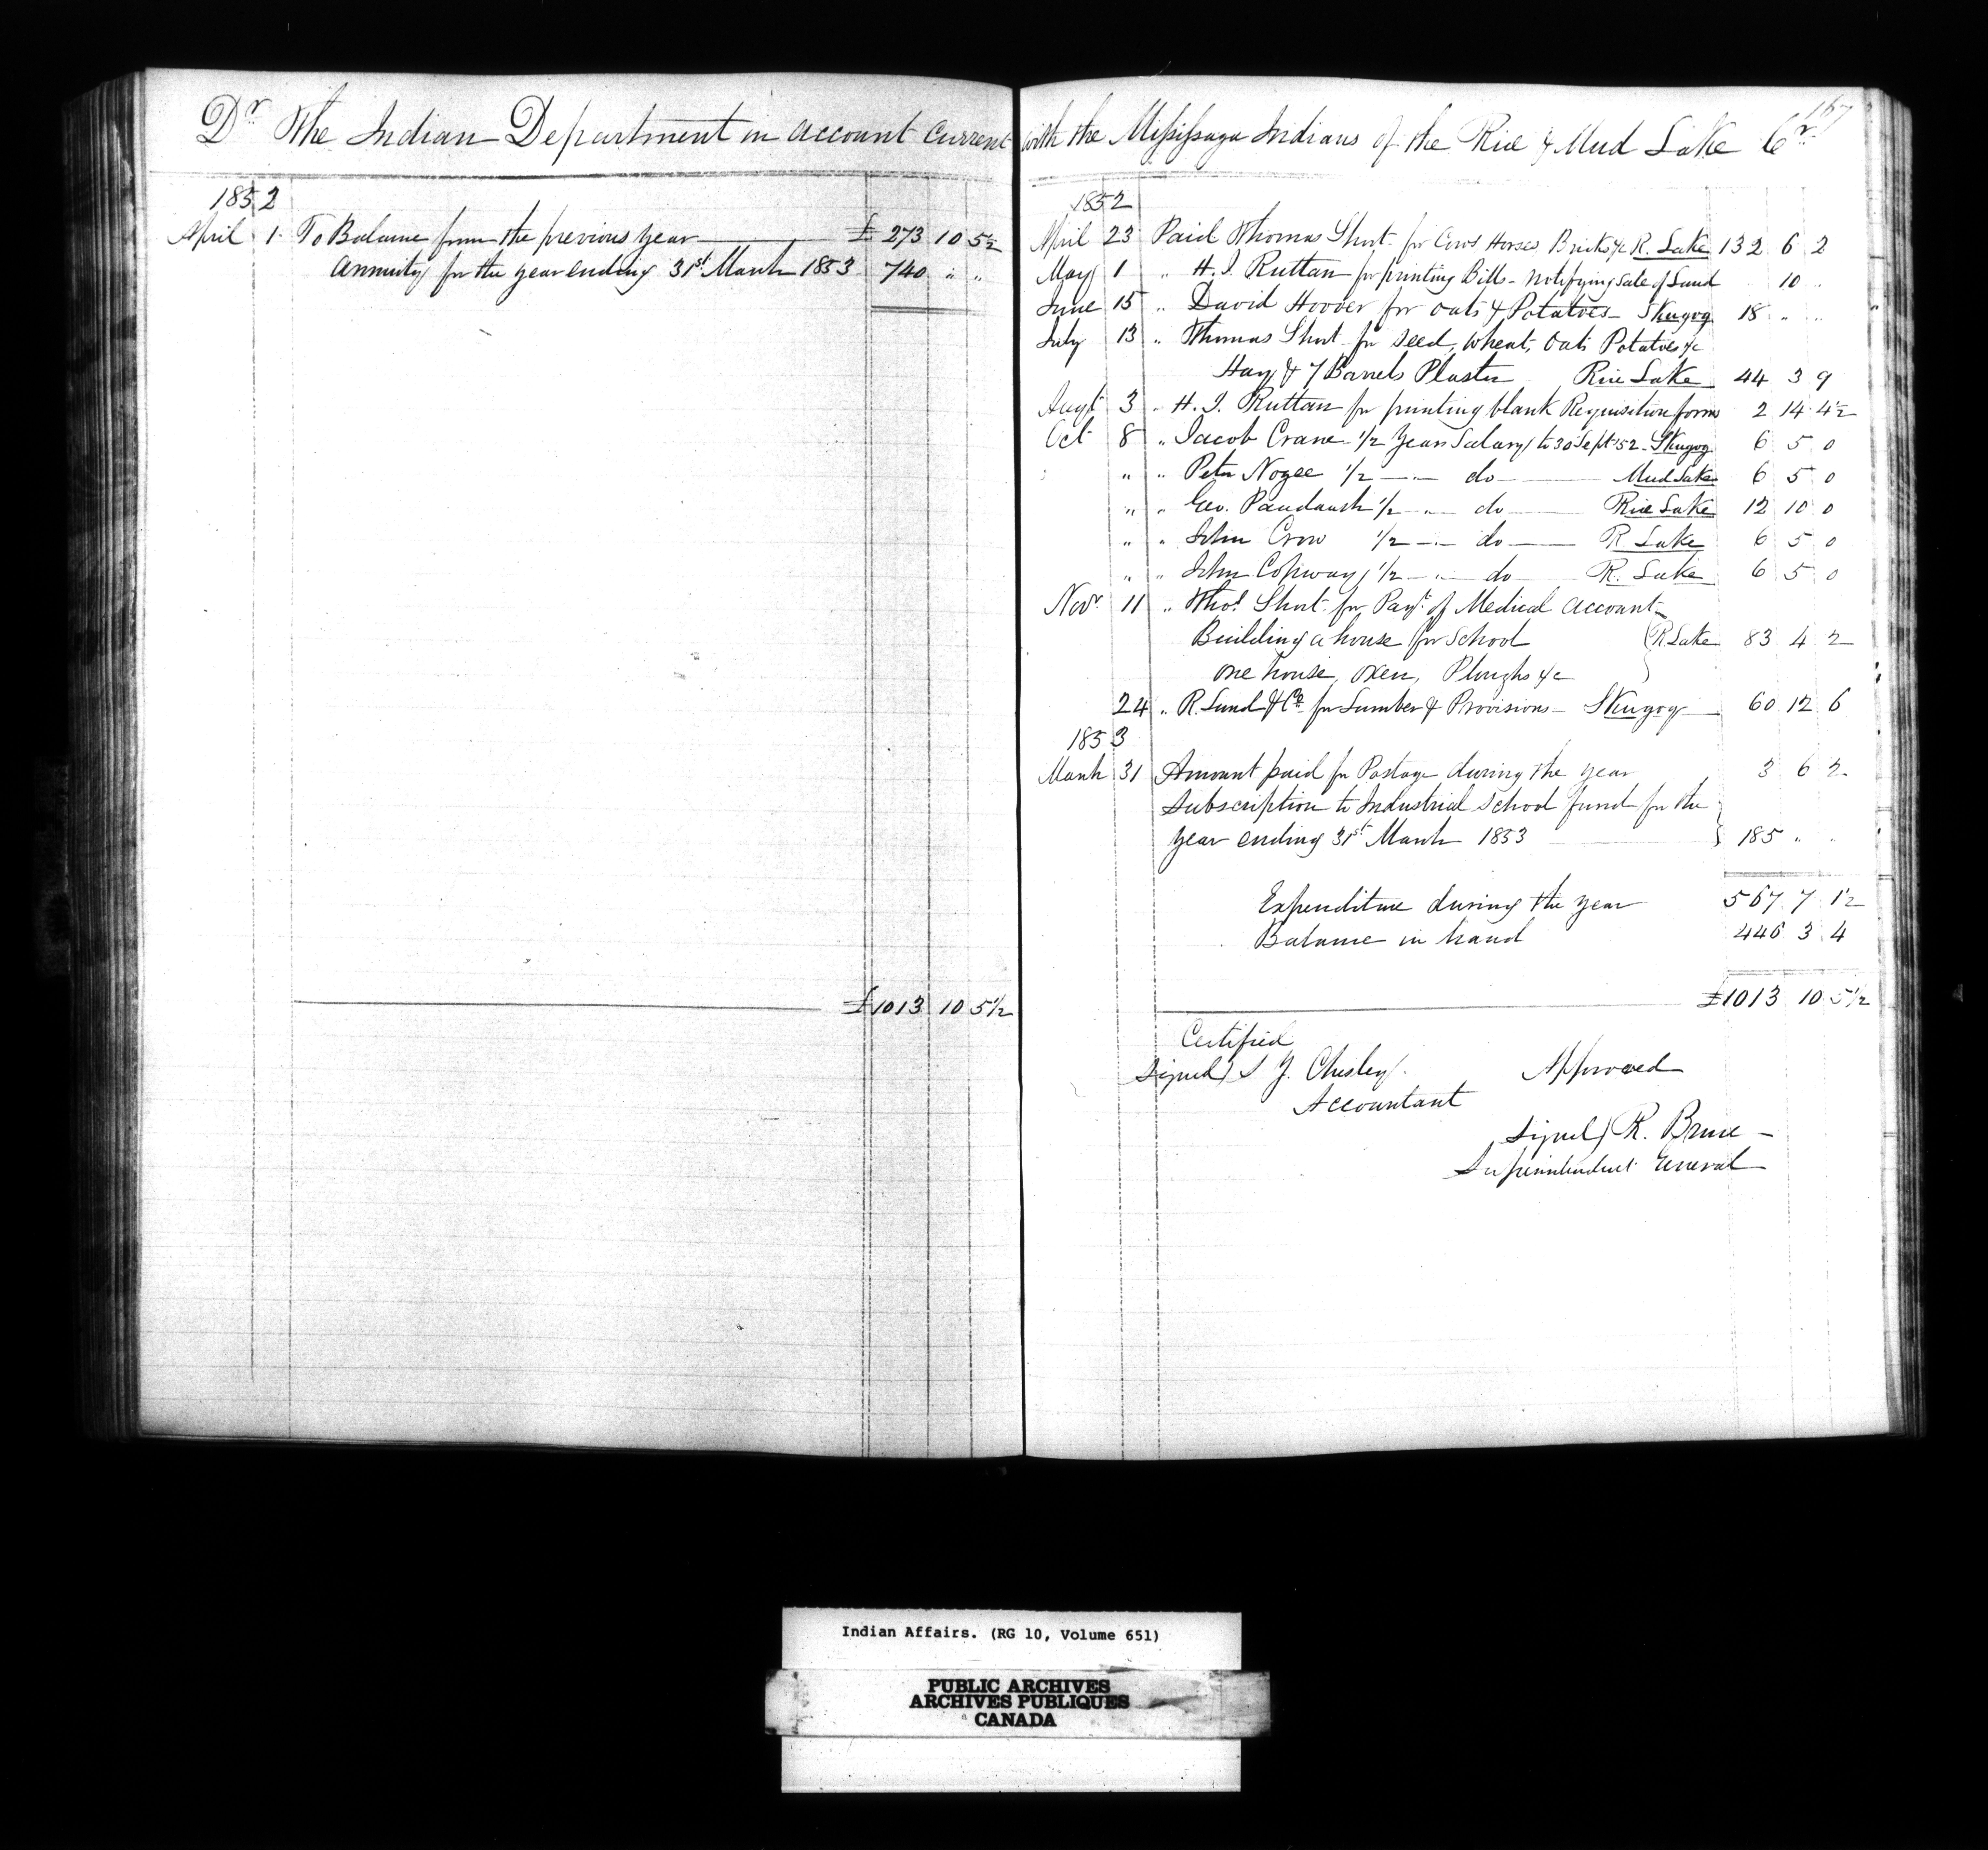 Dr The Indian Department in account current with the Missisaga Indians of the Rice & Mud Lake Cr.
167
1852
April 1 To Balance from the previous year £ 273 10 5½
Annuity for the year ending 31st March 1853 740 " "
£1013 10 5½
1852
April 23 Paid Thomas Short for Cows Horses Bricks &c R. Lake 132 6 2
May 1 " H. J. Ruttan for printing Bills - notifying sale of Land 10 "
June 15 " David Hoover for oats & Potatoes - Skugog 18 " "
July 13 " Thomas Short for Seed, Wheat, Oats Potatoes &c
Hay & 7 Barrels Plaster Rice Lake 44 3 9
Augt 3 " H. J. Ruttan for printing blank Requisition forms 2 14 4½
Oct 8 " Jacob Crane ½ Years Salary to 30 Sept 52 - Skugog 6 5 0
" " Peter Nogee ½ — " — do — Mud Lake 6 5 0
" " Geo. Paudaush ½ — " — do — Rice Lake 12 10 0
" " John Crow ½ — " — do — R Lake 6 5 0
" " John Copway ½ — " — do — R. Lake 6 5 0
Novr 11 " Thos Short for Payt of Medical account
Building a house for School R Lake 83 4 2
one house, oxen, Ploughs &c
24 " R. Lund & Co for Lumber & Provisions - Skugog 60 12 6
1853
March 31 Amount paid for Postage during the year 3 6 2
Subscription to Industrial School fund for the
year ending 31st March 1853 185 " "
Expenditure during the year 567 7 1½
Balance in hand 446 3 4
£1013 10 5½
Certified
Signed) S Y. Chesley.
Accountant
Approved
Signed) R. Bruce -
Superintendent General
Indian Affairs. (RG 10, Volume 651)
PUBLIC ARCHIVES
ARCHIVES PUBLIQUES
CANADA